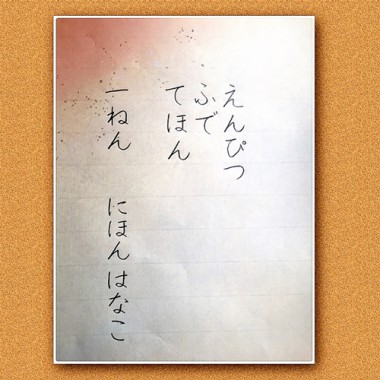 えんぴつ
ふで
てほん
一ねん にほんはなこ